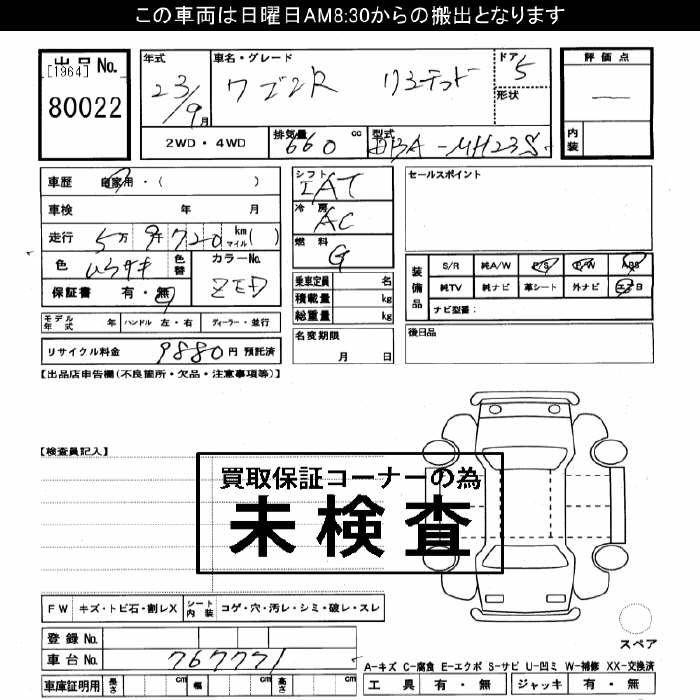 この車両は日曜日AM8:30からの搬出となります
出品 No.
[1964]
80022
年式
23/9月
車名・グレード
ワゴンR リミテッド
ドア 5
形状
評価点
内装
2WD・4WD
排気量 660 cc
型式 DBA-MH23S
車歴 自家用・( )
車検 年 月
走行 5万9千720 km マイル( )
色 ムラサキ
色替
カラーNo.
ZED
保証書 有・無
シフト IAT
冷房 AC
燃料 G
乗車定員 名
積載量 kg
総重量 kg
セールスポイント
装備品
S/R 純A/W P/S P/W ABS
純TV 純ナビ 革シート 外ナビ エアB
ナビ型番:
モデル年式 年 ハンドル 左・右 ディーラー・並行
名変期限
月 日
後日品
リサイクル料金 9880円 預託済
【出品店申告欄(不良箇所・欠品・注意事項等)】
【検査員記入】
買取保証コーナーの為
未検査
FW キズ・トビ石・割レX シート内装 コゲ・穴・汚レ・シミ・破レ・スレ
登録 No.
車台 No. 767771
スペア
A-キズ C-腐食 E-エクボ S-サビ U-凹ミ W-補修 XX-交換済
車庫証明用 長さ cm 幅 cm 高さ cm
工具 有・無 ジャッキ 有・無